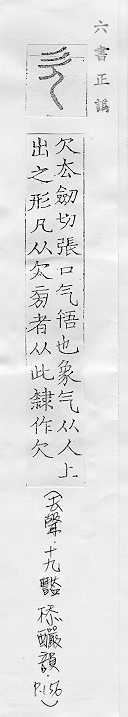 六書正譌
欠厺劒切張口气悟也象气从人上
出之形凡从欠㫄者从此隸作欠
(去聲·十九豔㮇釅韻·P.156)